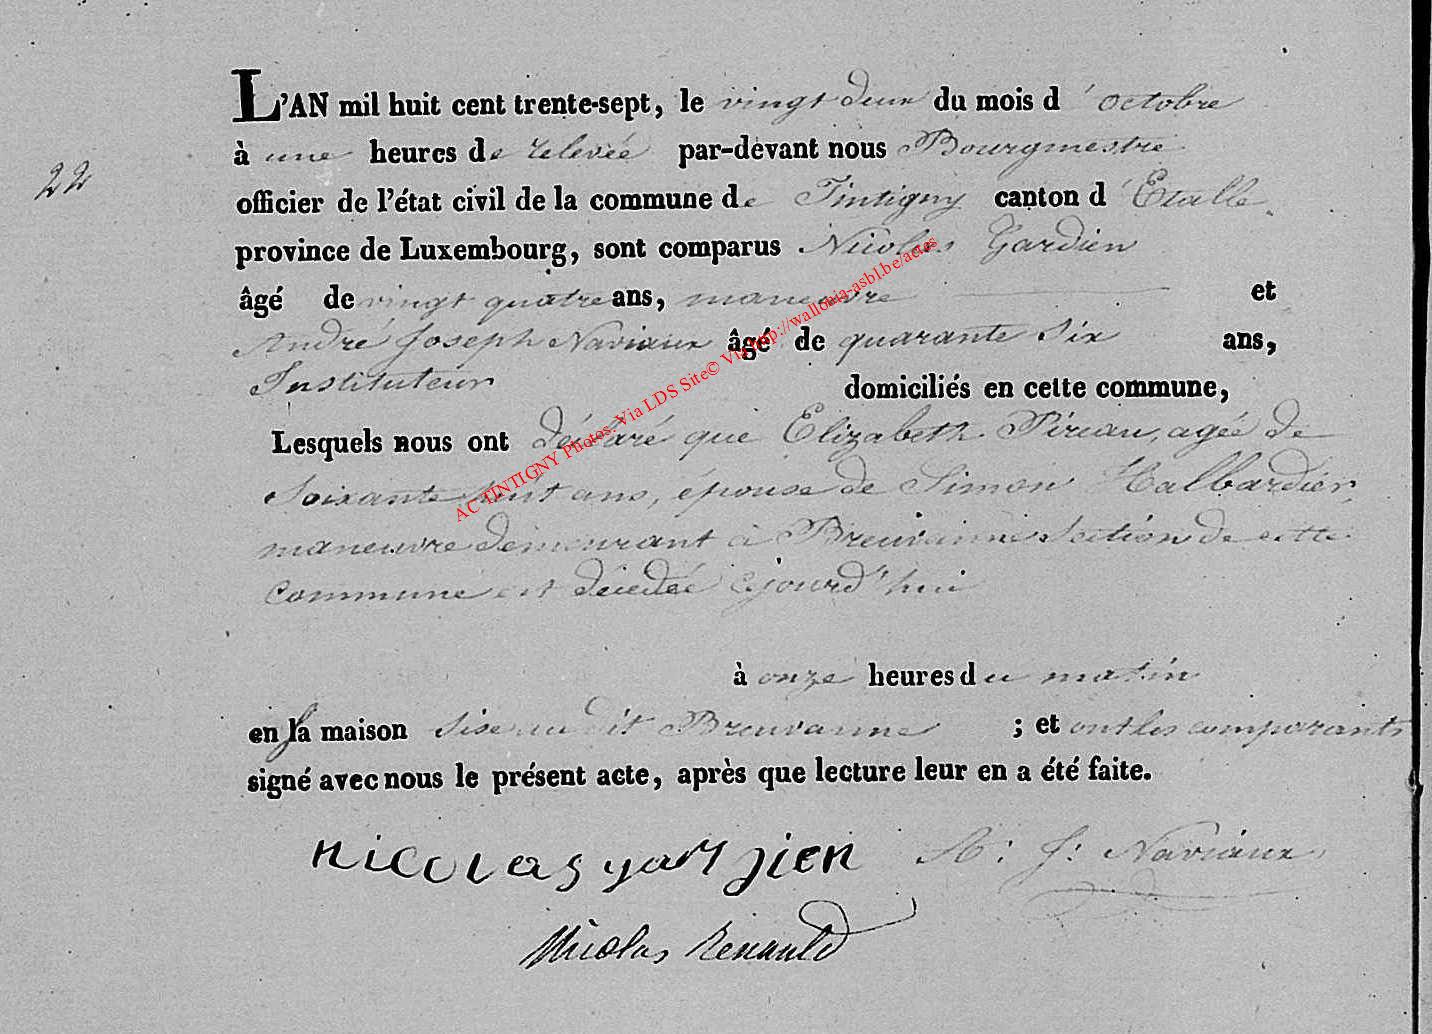 L'AN mil huit cent trente-sept, le vingt deux du mois d'octobre
à une heures de relevée par-devant nous Bourgmestre
22
officier de l'état civil de la commune de Tintigny canton d'Etalle
province de Luxembourg, sont comparus Nicolas Gardien
âgé de vingt quatre ans, maneuvre et
André Joseph Naviaux âgé de quarante six ans,
Instituteur domiciliés en cette commune,
Lesquels nous ont déclaré que Elizabeth Pireau, agée de
soixante huit ans, épouse de Simon Halbardier,
maneuvre demeurant à Breuvanne section de cette
commune est décedée cejourd'hui
à onze heures du matin
en sa maison sise au dit Breuvanne ; et ont les comparants
signé avec nous le présent acte, après que lecture leur en a été faite.
nicolas gardien A: J: Naviaux
Nicolas Renauld
AC TINTIGNY Photos. Via LDS Site© Via http://wallonia-asbl.be/actes